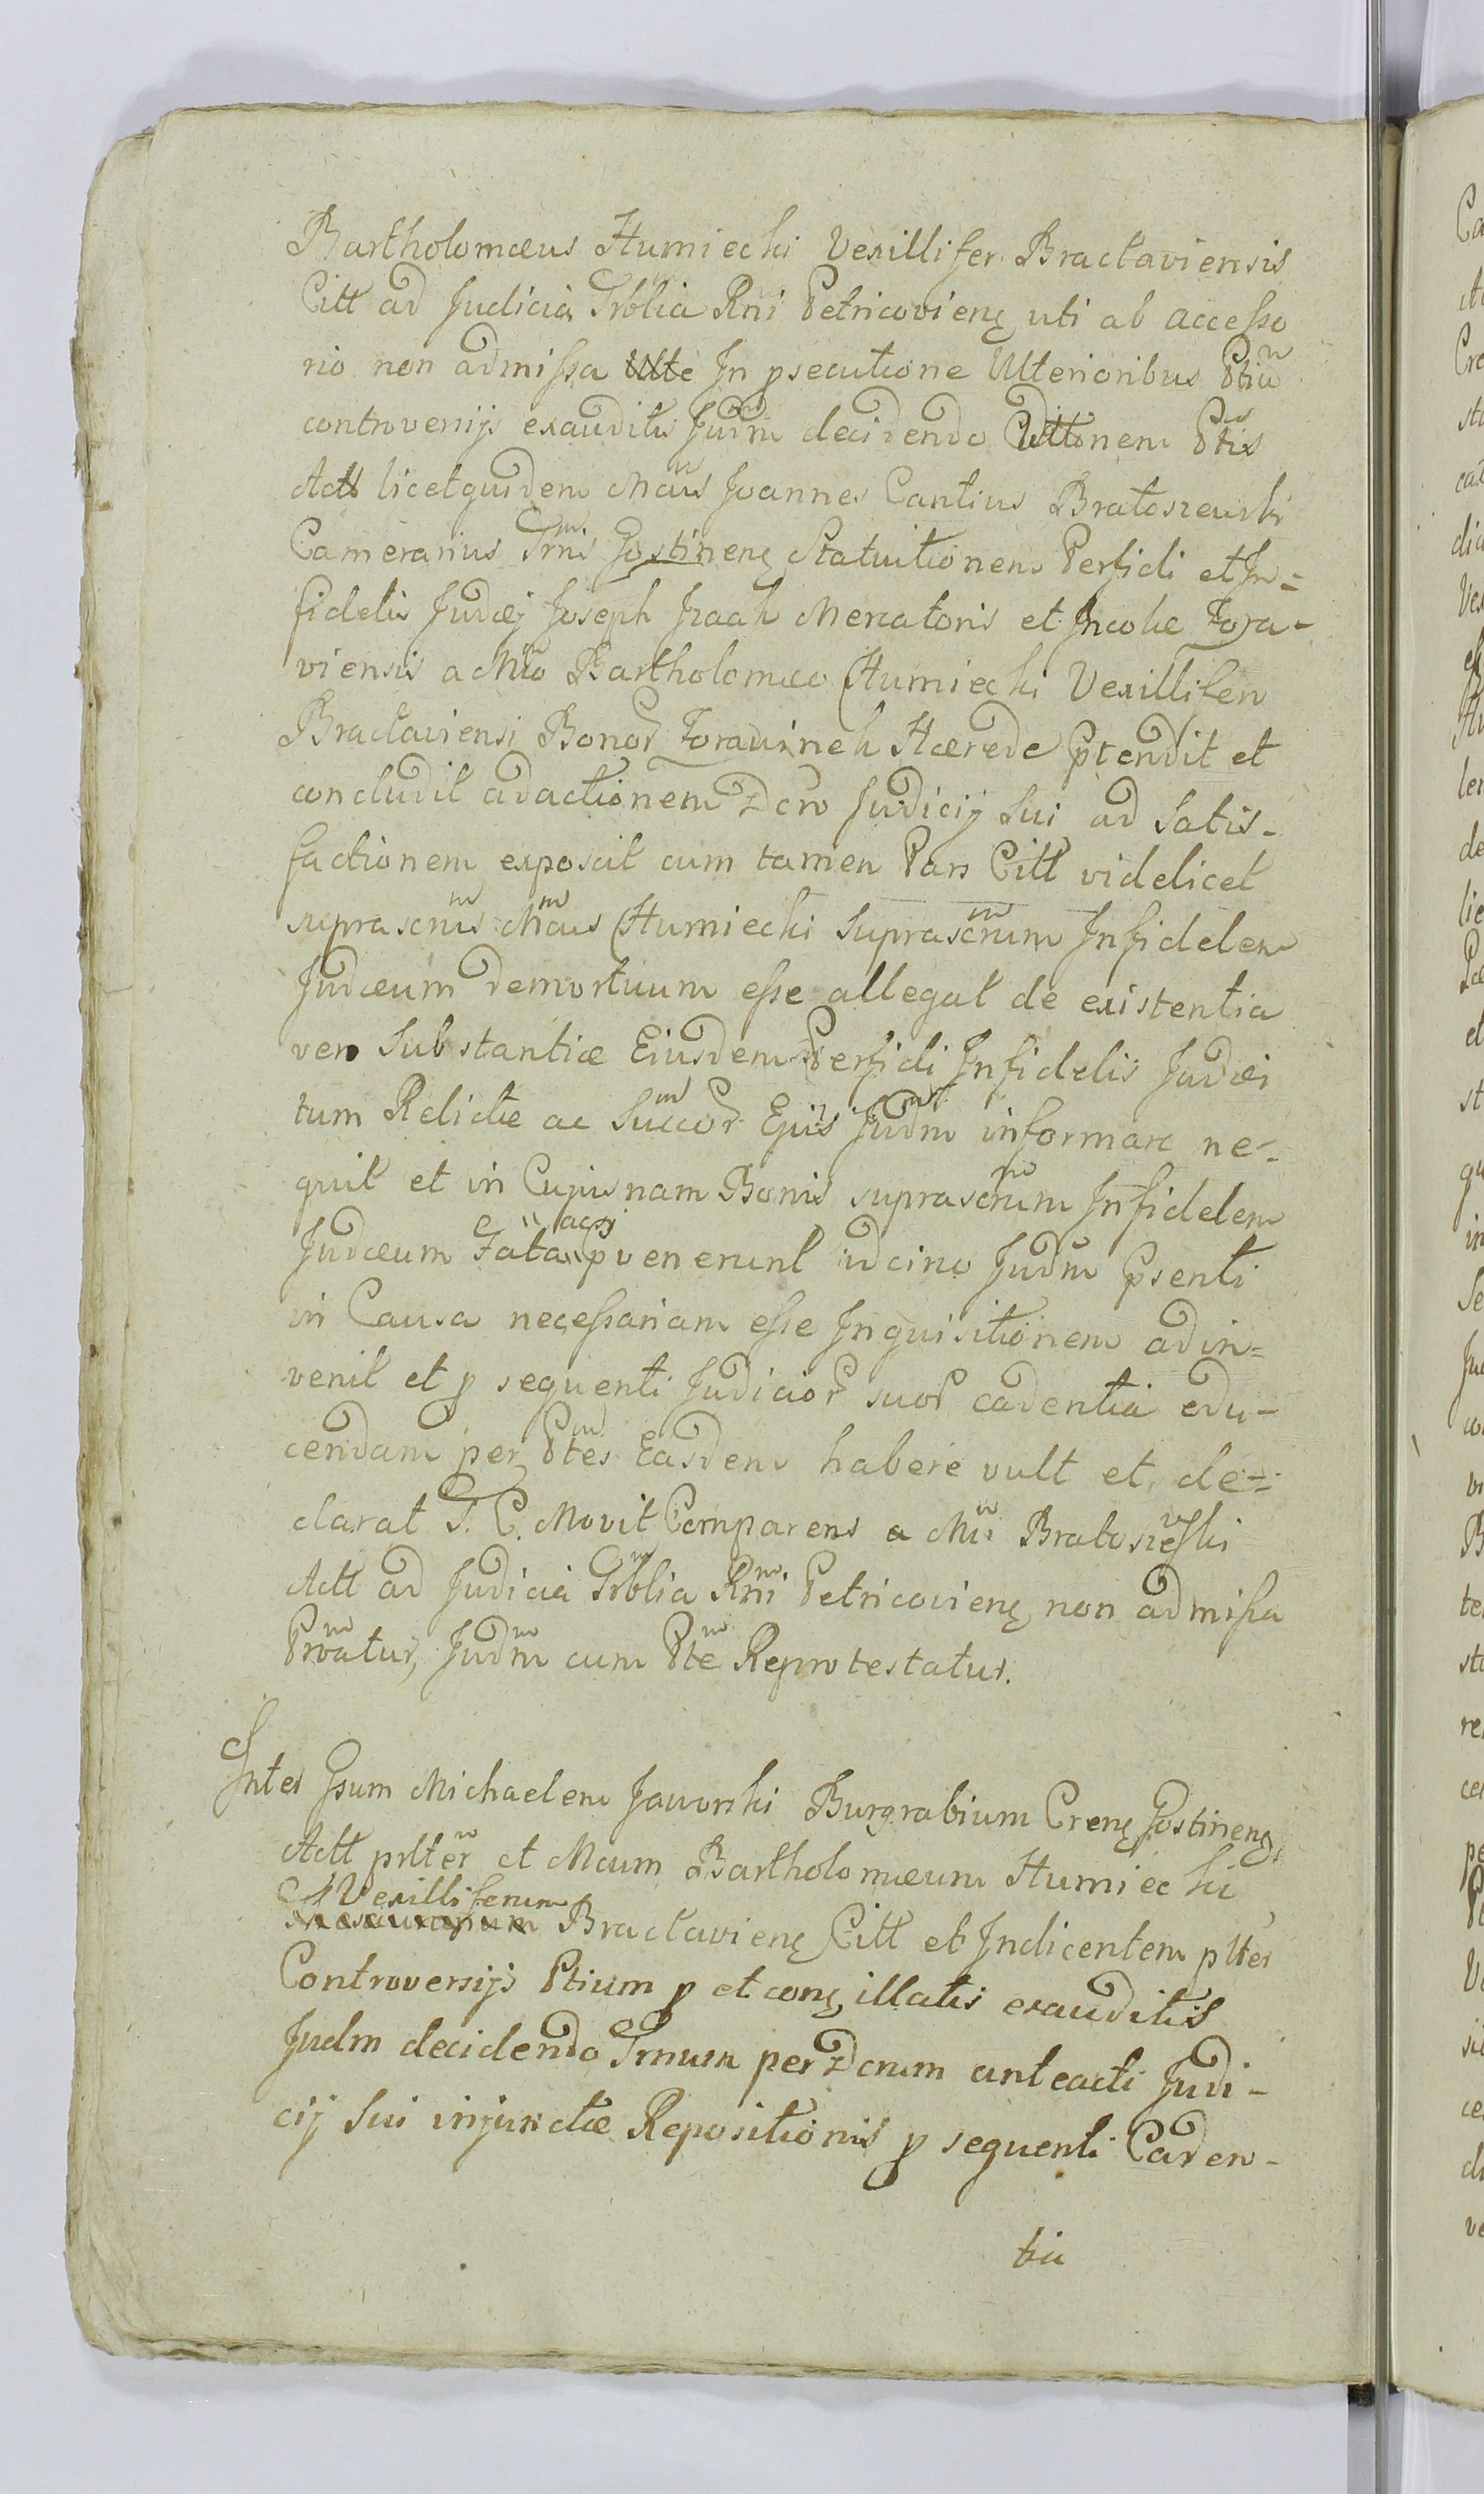 Bartholomæus Humiecki Vexillifer Bractaviensis
Citt ad Judicia Trblia Rni Petricovieng uti ab accesso
rio non admissa In psecutione Ulterioribus Ptiu
controversijs exauditis Judm decidendo Cittonem Ptis
Act licet quidem Mcus Joannes Cantius Bratoszewski
Camerarius Trris Gostineng Statuitionem Perfidi et In=
fidelis Judæj Joseph Jzaak Mercatoris et Incolæ Zora-
viensis a Mco Bartholomæo Humiecki Vexillifero
Bractaviensi Bonor Zorawinek Hærede Ptendit et
concludit ad actionem Dcro Judicij sui ad satis-
factionem exposcit cum tamen Pars Citt videlicet
suprascrius Mcus Humiecki suprascrum Infidelem
Judæum demortuum esse allegat de existentia
vero Substantiæ Eiusdem Perfidi Infidelis Judæi
tum Relictæ ac Succor Ejus Judm informare ne-
quit et in Cujusnam Bonis suprascrum Infidelem
Judæum Fata pvenerunt idcirco Judm Psenti
in Causa necessariam esse Inquisitionem adin=
venit et p sequenti Judicior suor cadentia edu-
cendam per Ptes Easdem habere vult et de=
clarat S. C. Movit Comparens a Mci Bratoszewski
Act ad Judicia Trblia Rni Petricovieng non admissa
Prvatur, Judm cum Pte Reprotestatur.
Inter Gsum Michaelem Jaworski Burgrabium Creng Gostineng
Act prlter et Mcum Bartholomæum Humiecki
Vexilliferum
Bractavieng Citt et Indicentem plter
Controversijs Ptium p et cong illatis exauditis
Judm decidendo Trnum per Dcrum anteacti Judi-
cij sui injunctæ Repositionis p sequenti Caden-
tia